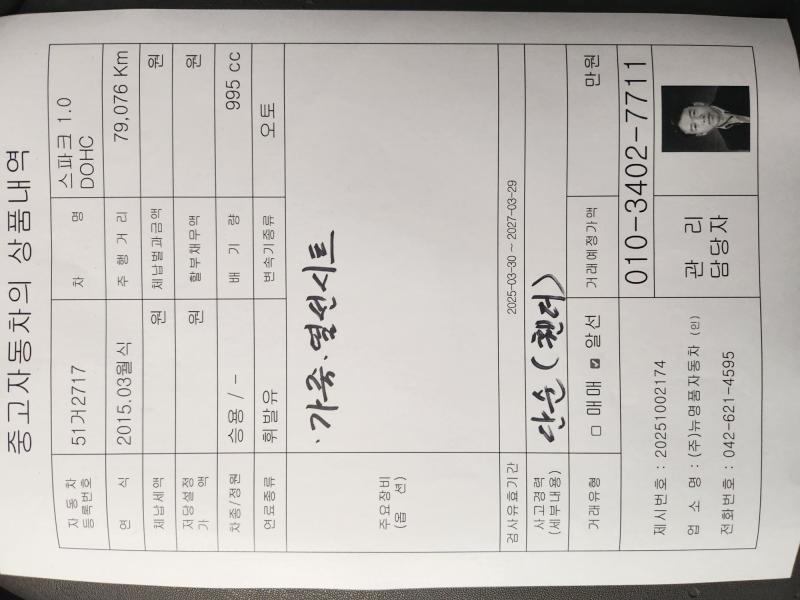 중고자동차의 상품내역
자 동 차
등록번호
51거2717
차 명
스파크 1.0
DOHC
연 식
2015.03월식
주 행 거 리
79,076 Km
체납세액
원
체납벌과금액
원
저당설정
가 액
원
할부채무액
원
차종/정원
승용 / -
배 기 량
995 cc
연료종류
휘발유
변속기종류
오토
주요장비
(옵 션)
· 가죽·열선시트
검사유효기간
2025-03-30 ~ 2027-03-29
사고경력
(세부내용)
단순 (휀더)
거래유형
□ 매매 ☑ 알선
거래예정가액
만원
제시번호 : 20251002174
010-3402-7711
업 소 명 : (주)뉴명품자동차 (인)
전화번호 : 042-621-4595
관 리
담당자